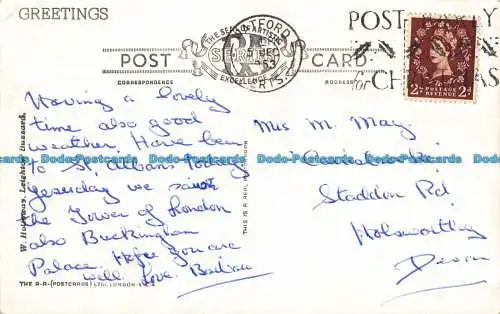 GREETINGS
POST EARLY
for CHRISTMAS
WATFORD
HERTS.
5 DEC
1953
THE SEAL OF ARTISTIC
EXCELLENCE
POST CARD
CORRESPONDENCE
ADDRESS
2D POSTAGE REVENUE 2D
Having a lovely
time also good
weather. Have been
to St. Albans today
yesterday we saw
the Tower of London
also Buckingham
Palace. Hope you are
well. love.
Mrs M. May.
Staddon Rd
Holsworthy
Devon
W. Holloway, Leighton Buzzard.
THIS IS A REAL PHOTOGRAPH
THE R.A. (POSTCARDS) LTD. LONDON
Dodo-Postcards Dodo-Postcards Dodo-Postcards Dodo-Postcards